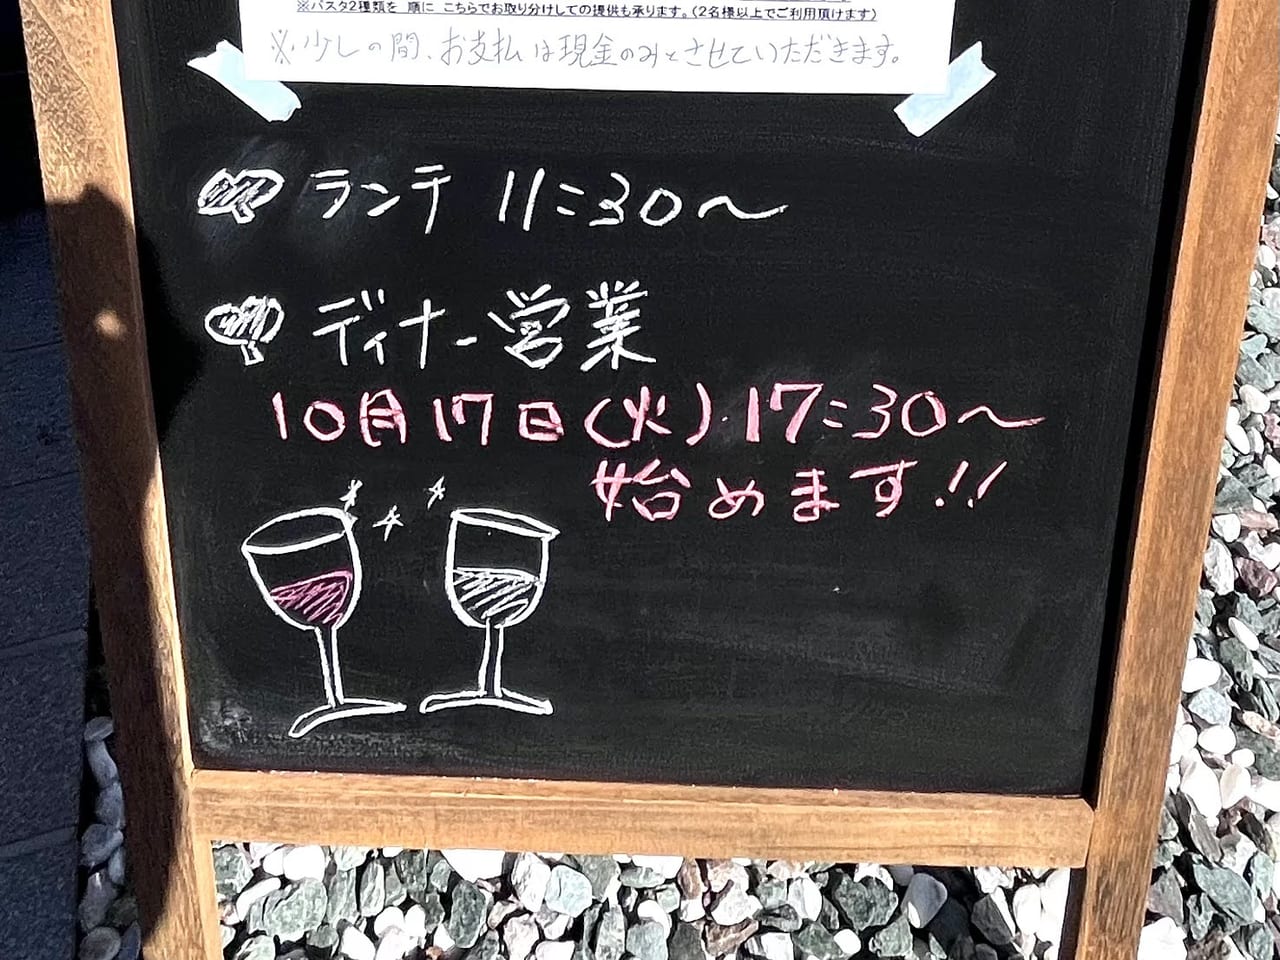 ※パスタ2種類を 順に こちらでお取り分けしての提供も承ります。(2名様以上でご利用頂けます)
※少しの間、お支払は現金のみとさせていただきます。
ランチ 11:30〜
ディナー営業
10月17日(火)17:30〜
始めます!!